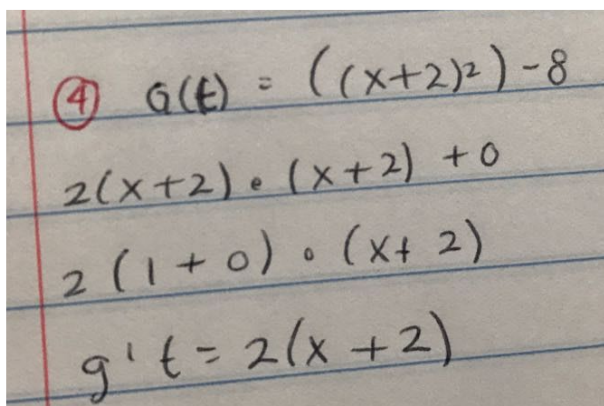 ④ G(t) = ((x+2)²) - 8
2(x+2) • (x+2) + 0
2 (1 + 0) • (x + 2)
g't = 2(x + 2)